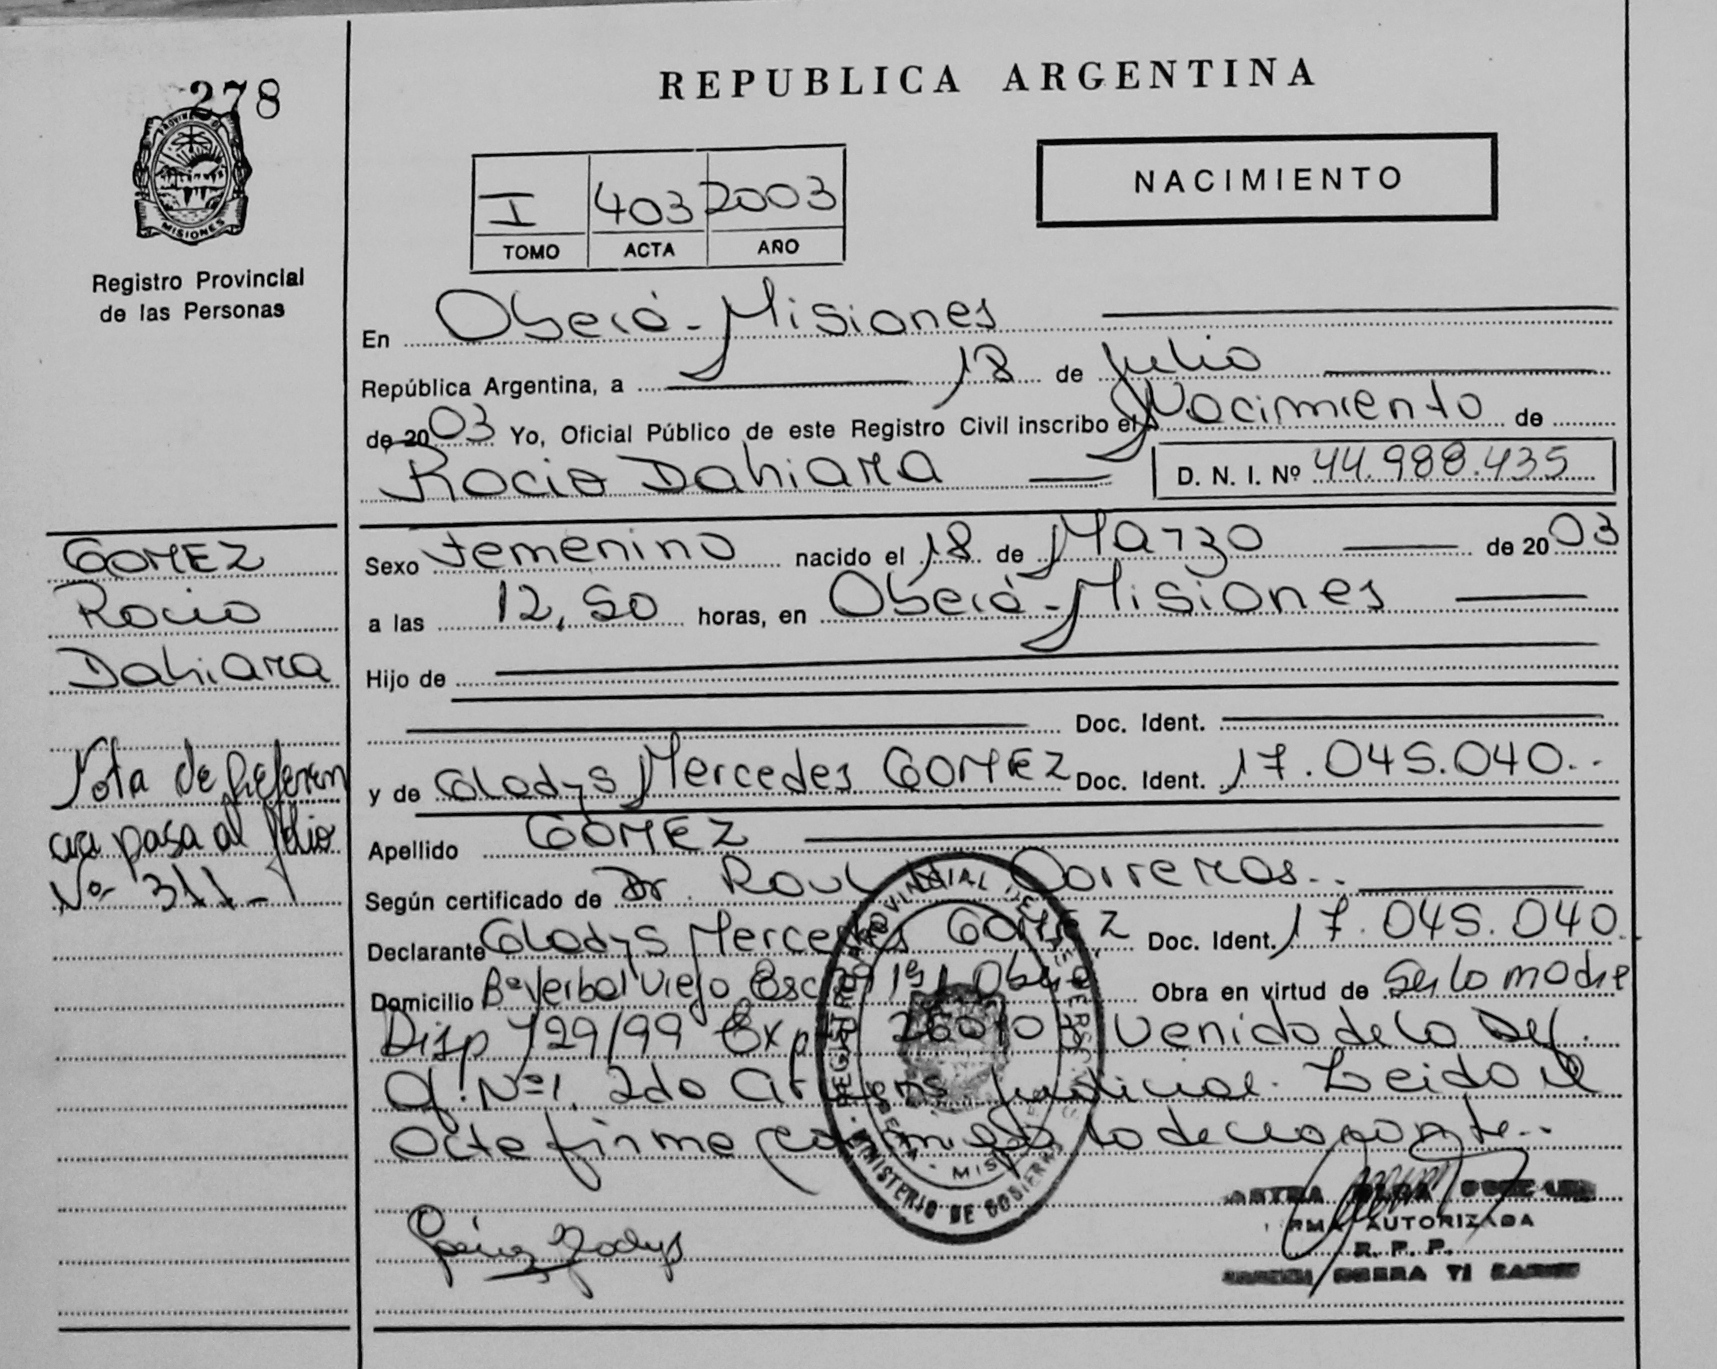 278
REPUBLICA ARGENTINA
PROVINCIA DE
MISIONES
Registro Provincial
de las Personas
I 403 2003
TOMO ACTA AÑO
NACIMIENTO
En Oberá - Misiones
República Argentina, a 18 de Julio
de 2003 Yo, Oficial Público de este Registro Civil inscribo el Nacimiento de
Rocio Dahiana D. N. I. Nº 44.988.435
GOMEZ
Rocio
Dahiana
Sexo femenino nacido el 18 de Marzo de 2003
a las 12,50 horas, en Oberá - Misiones
Hijo de
Doc. Ident.
y de Gladys Mercedes GOMEZ Doc. Ident. 17.045.040..
Nota de Referen
cia pasa al folio
Nº 311-
Apellido GOMEZ
Según certificado de Dr. Raul Correras..
Declarante Gladys Mercedes GOMEZ Doc. Ident. 17.045.040
Domicilio Bº Yerbal Viejo Esc 191 Oberá Obra en virtud de Ser la madre
Disp 729/99 Exp venido de la Def.
Of. Nº1. 2do judicial. Leido el
acta firma la declarante..
Gómez Gladys
FIRMA AUTORIZADA
R. P. P.
REGISTRO PROVINCIAL DE LAS PERSONAS
MINISTERIO DE GOBIERNO